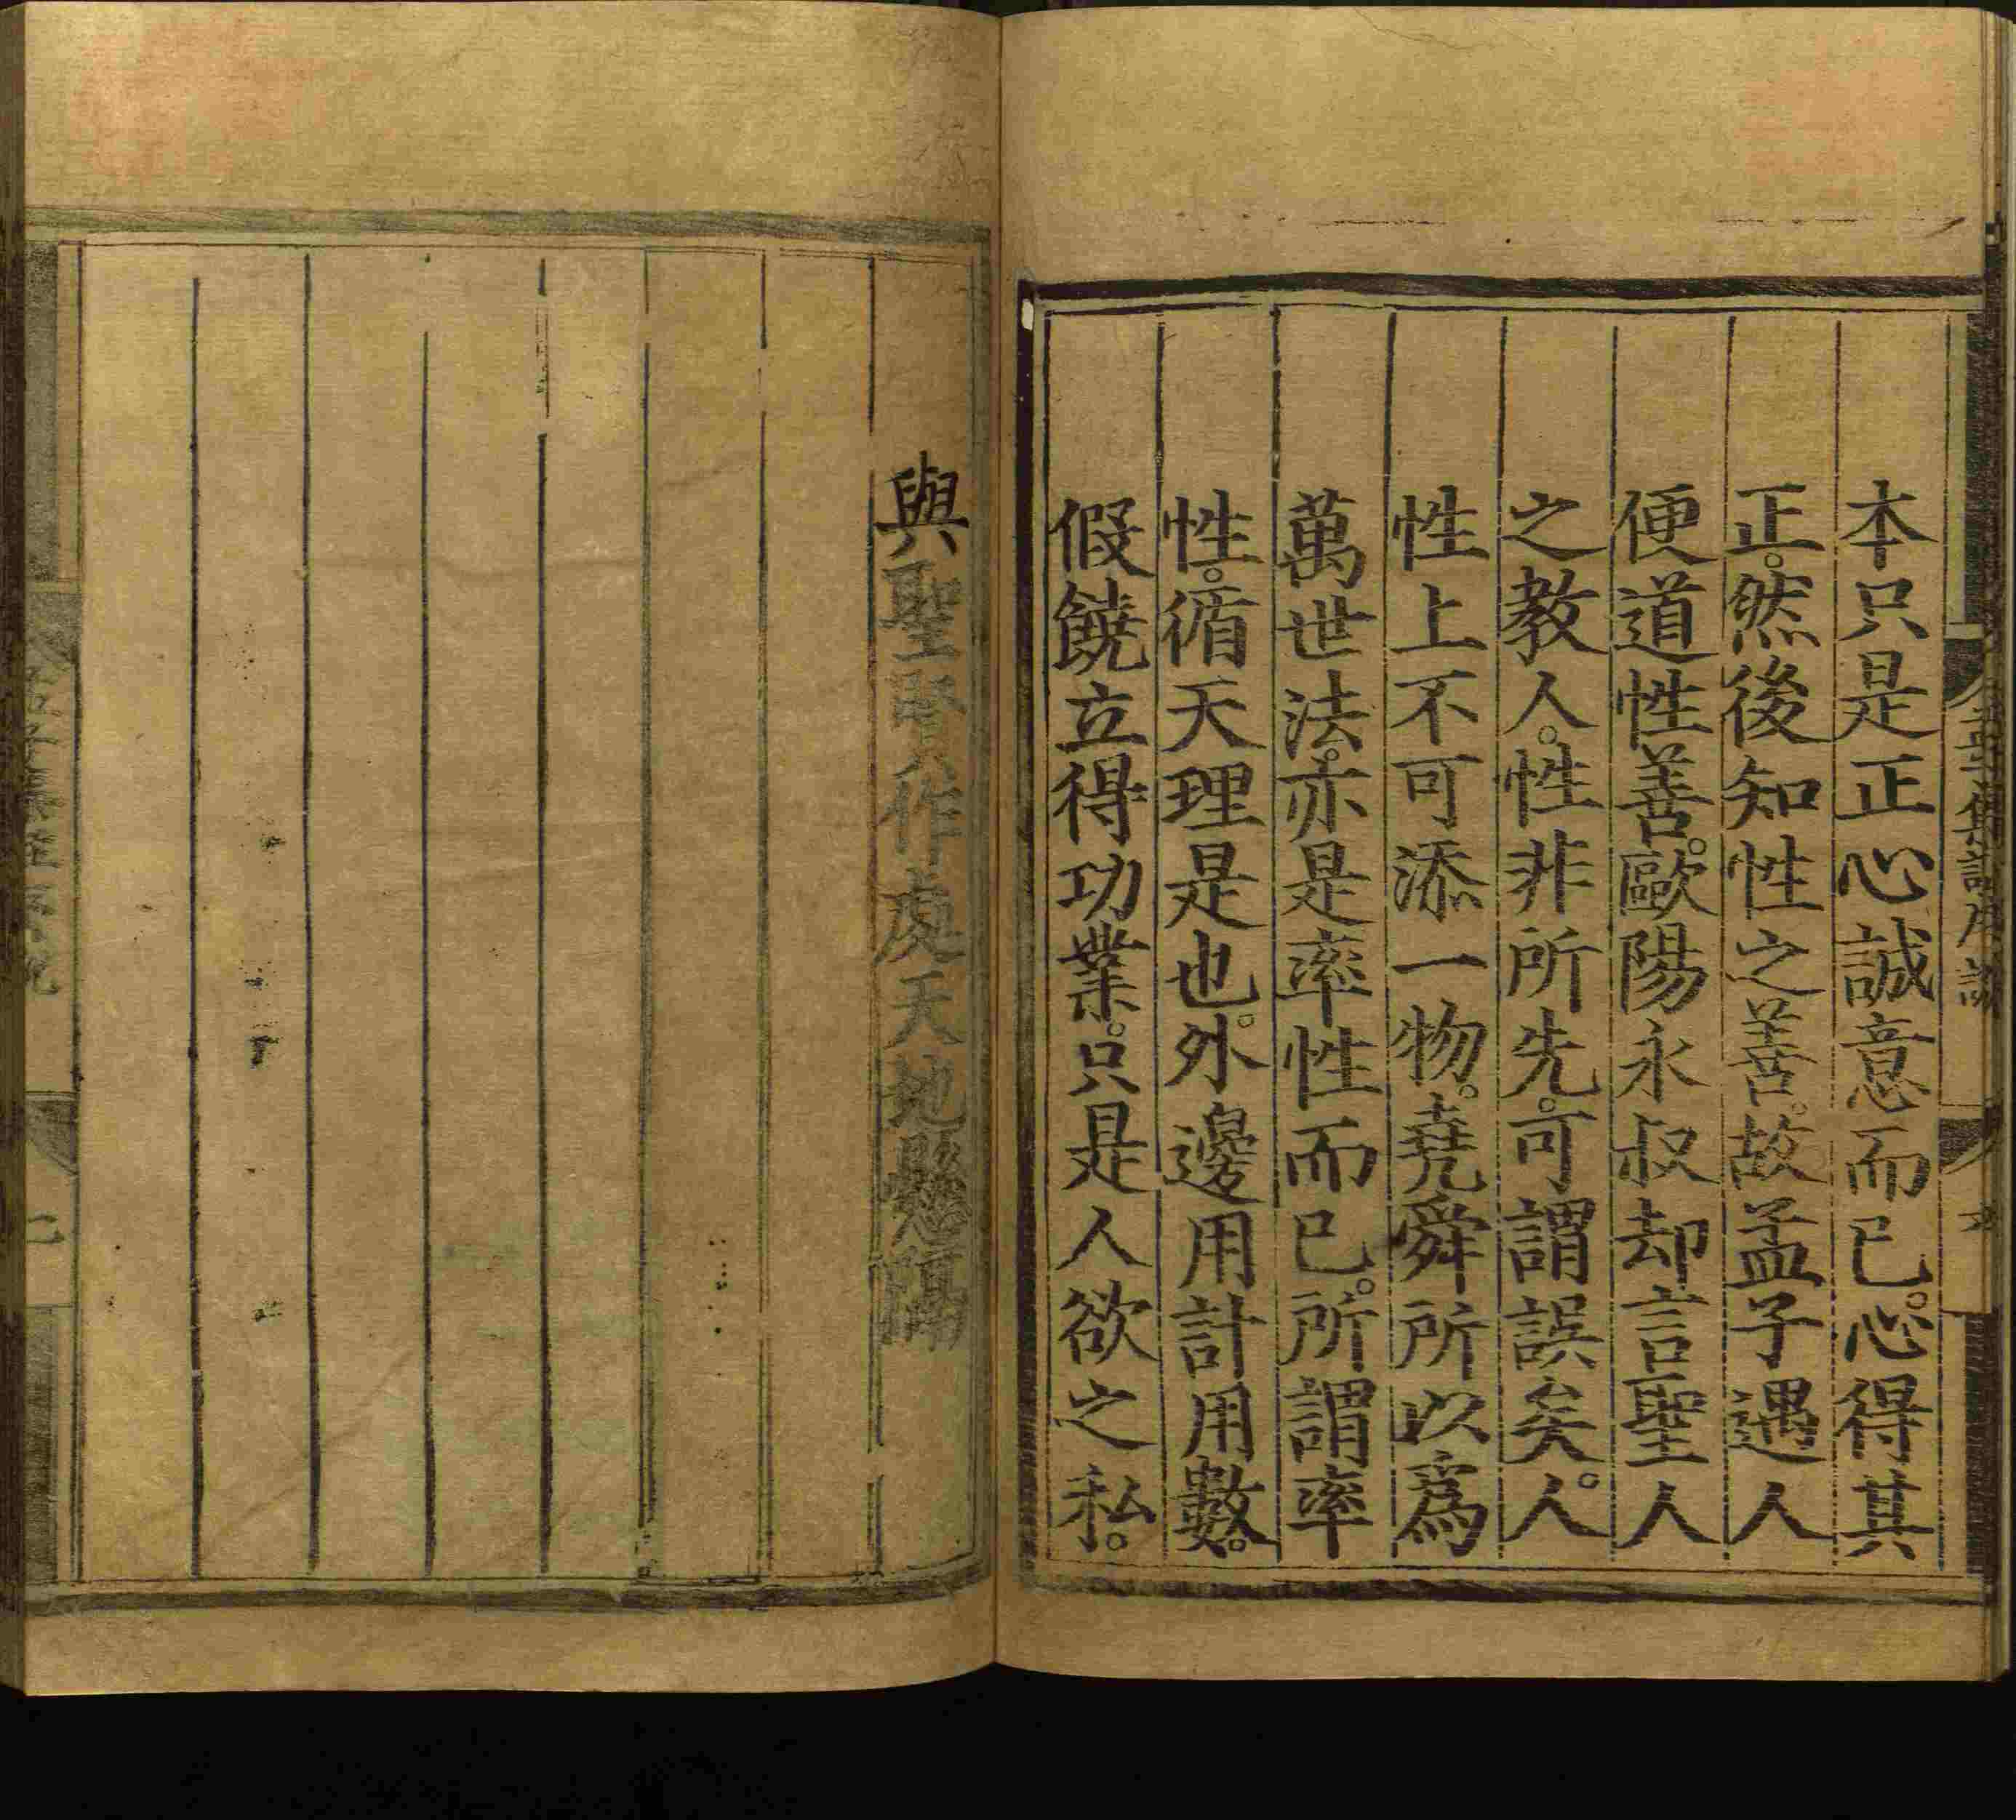 本只是正心誠意而已。心得其
正。然後知性之善。故孟子遇人
便道性善。歐陽永叔却言聖人
之教人。性非所先。可謂誤矣。人
性上不可添一物。堯舜所以為
萬世法。亦是率性而已。所謂率
性。循天理是也。外邊用計用數。
假饒立得功業。只是人欲之私。
與聖賢作處天地懸隔